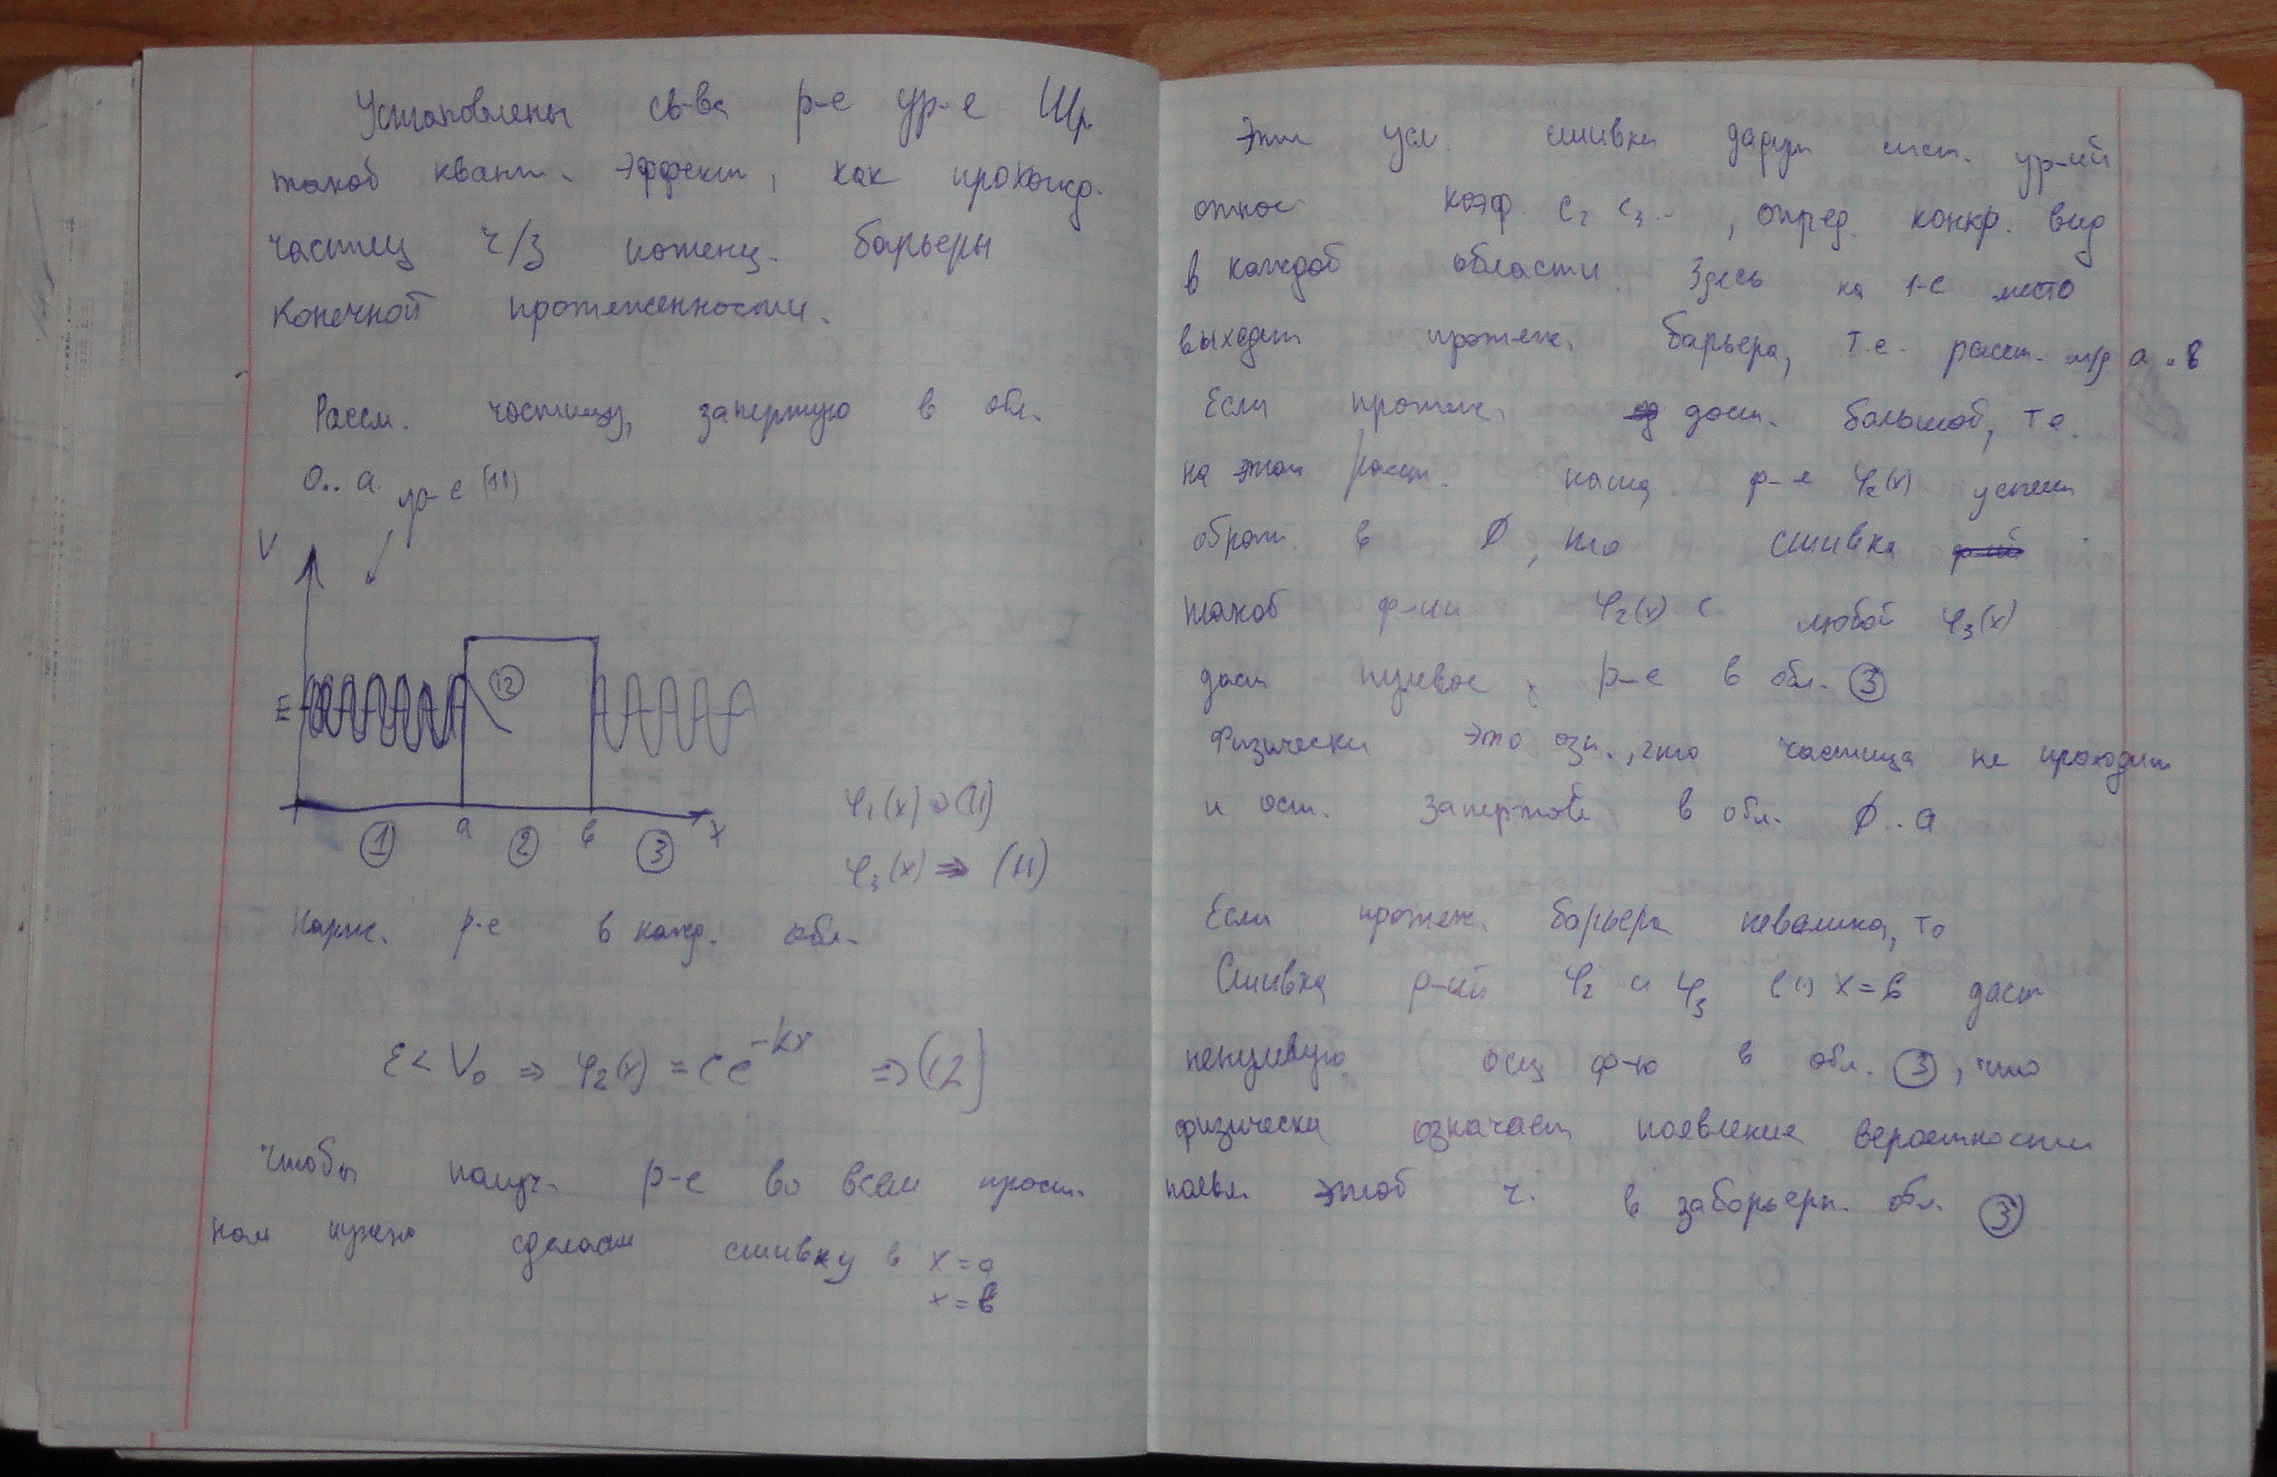 Установлены св-ва р-е ур-е Шр.
такой квант. эффект, как прохожд.
частиц ч/з потенц. барьеры
конечной протяженности.
Рассм. частицу, запертую в обл.
0.. a.
р-е (11)
V
E
12
a
в
x
1
2
3
φ₁(x) ⇒ (11)
φ₃(x) ⇒ (11)
р-е в кажд. обл.
ε < V₀ ⇒ φ₂(x) = c e^{-kx} ⇒ (12)
чтобы получ. р-е во всем прост.
нам нужно сделать сшивку в x = a
x = в
Эти усл. сшивки дадут сист. ур-ий
относ коэф. c₂ c₃.. , опред. конкр. вид
в каждой области. Здесь на 1-е место
выходит протяж. барьера, т.е. расст. м/у a и в
Если протяж. дост. большой, т.е.
на этом расст. наша ф-я φ₂(x) успеет
обрат. в 0, то сшивка
такой ф-ии φ₂(x) с любой φ₃(x)
даст нулевое р-е в обл. 3
Физически это озн., что частица не проходит
и ост. запертой в обл. 0..a
Если протяж. барьера невелика, то
Сшивка р-ий φ₂ и φ₃ в (·) x = в даст
ненулевую осц ф-ю в обл. 3, что
физически означает появление вероятности
появл. этой ч. в забарьерн. обл. 3